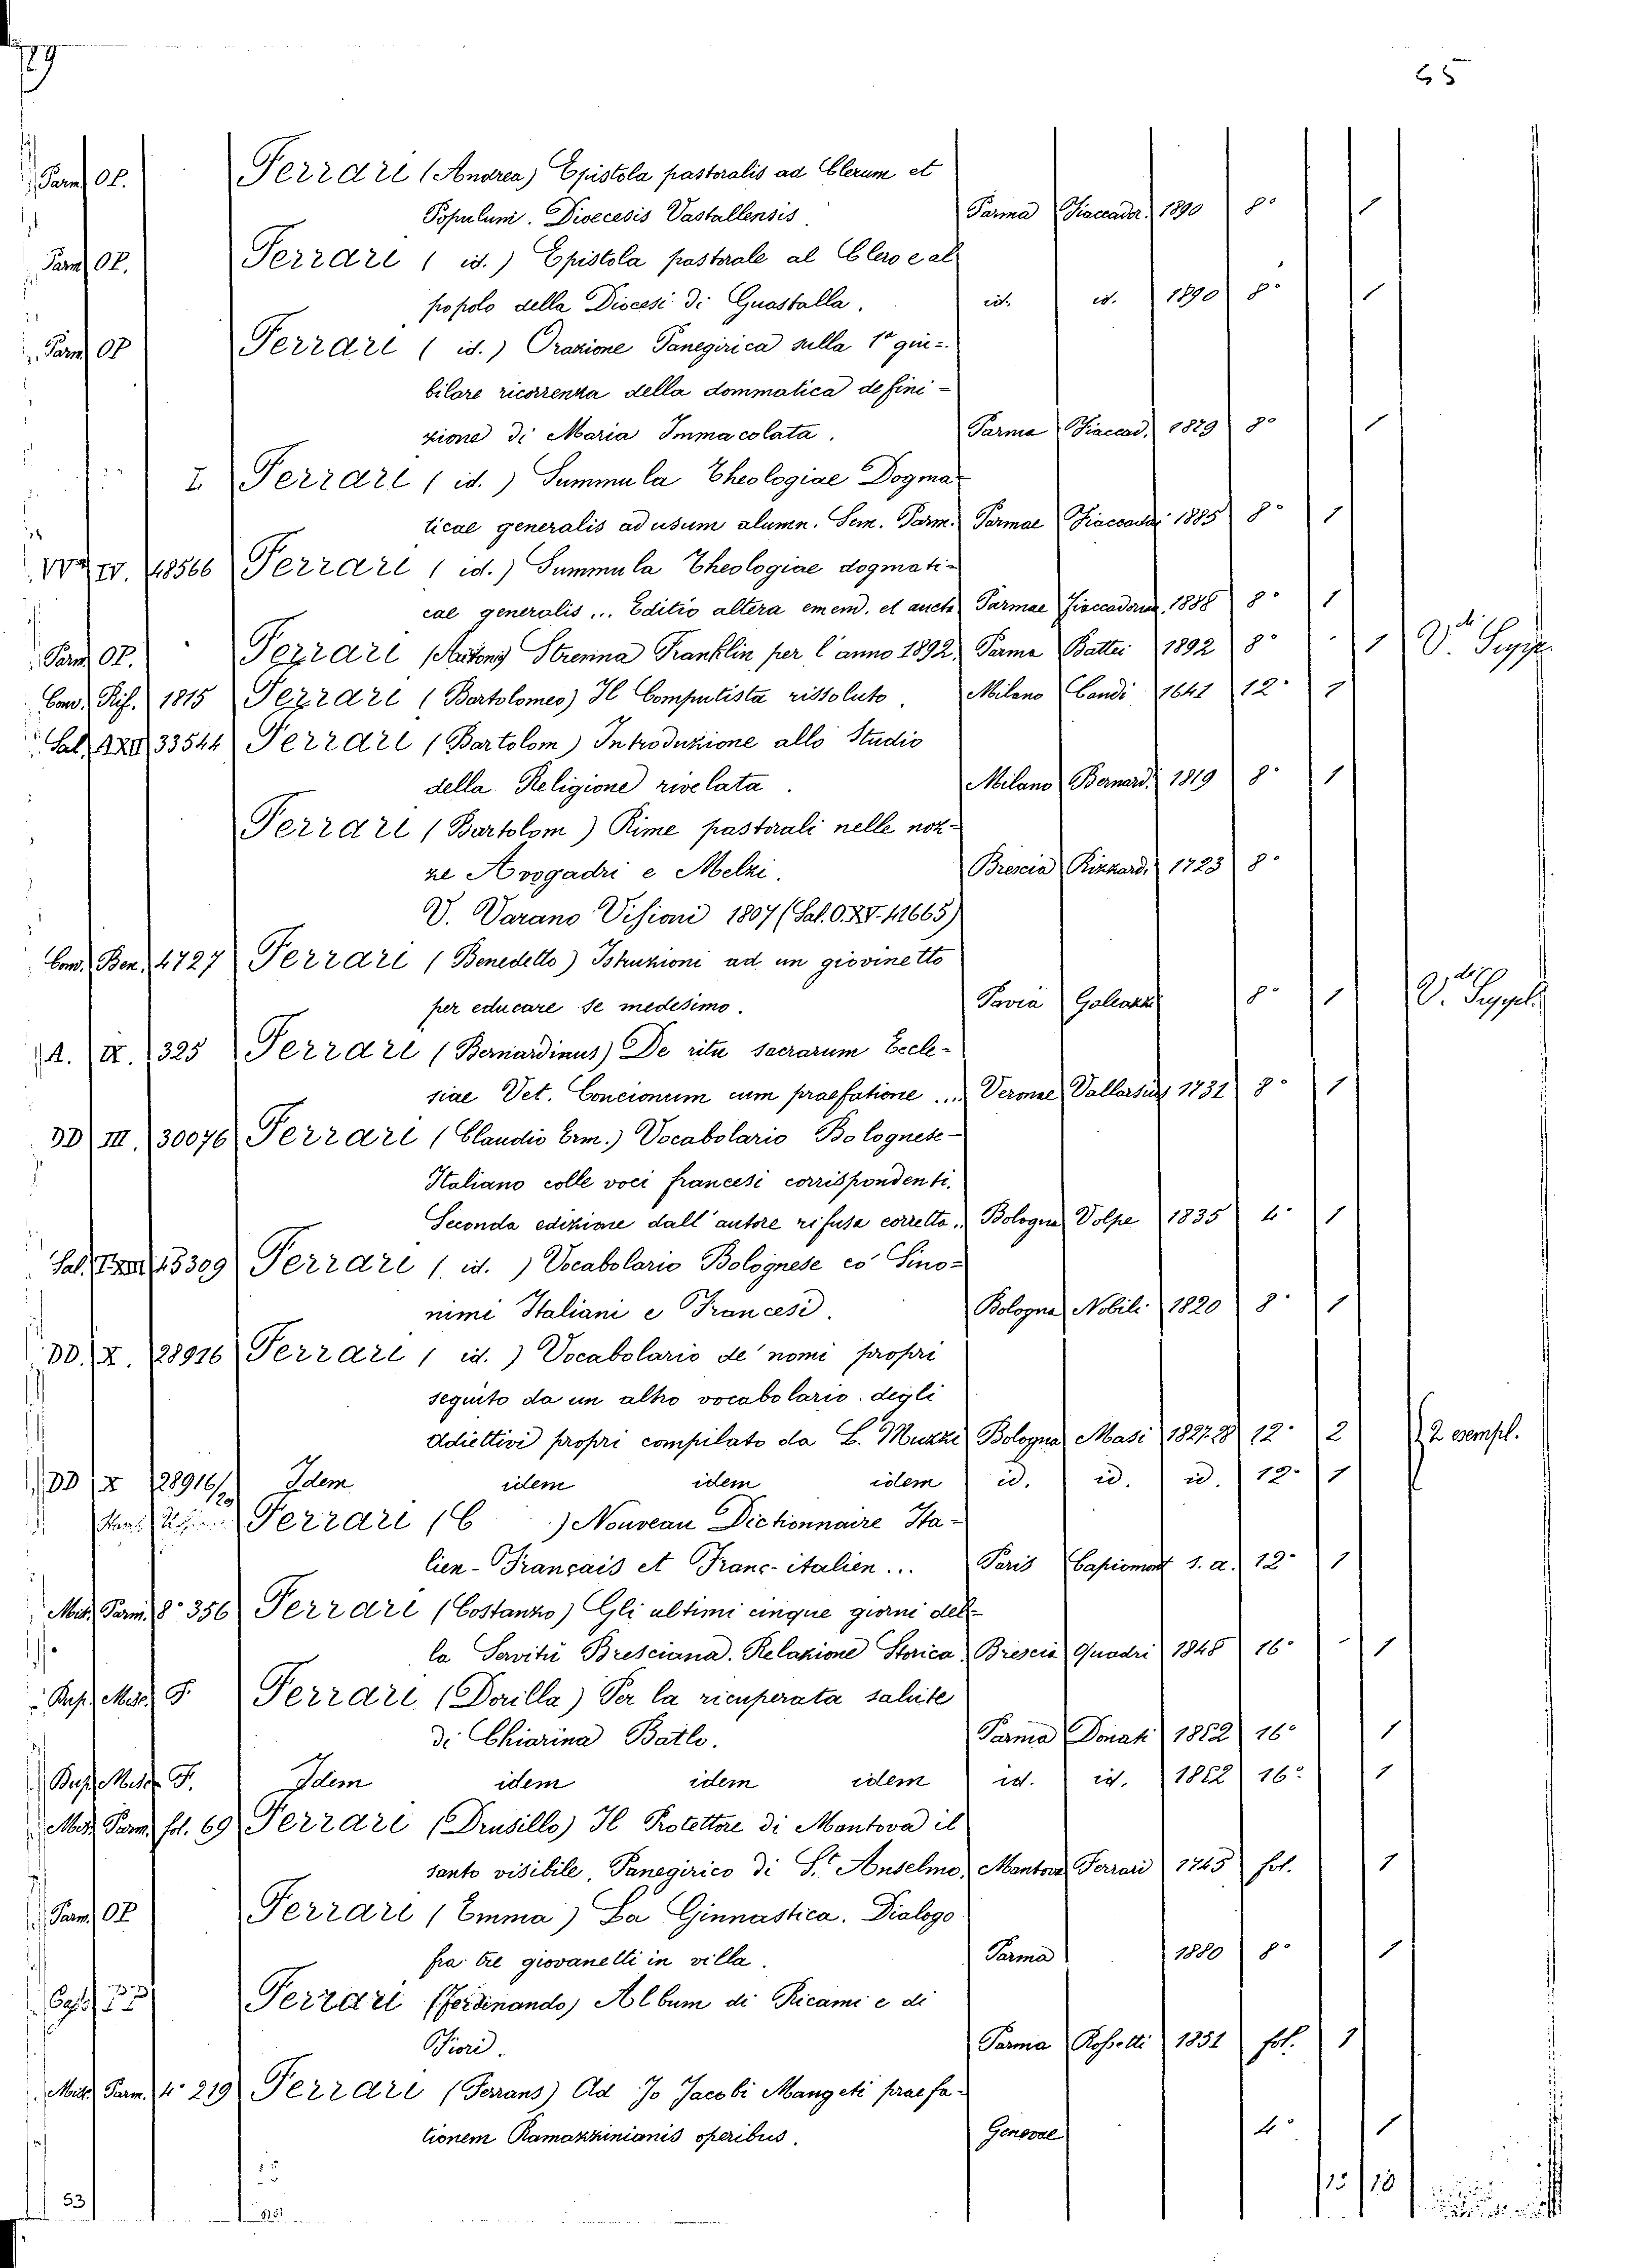 65
Parm. OP. Ferrari (Andrea) Epistola pastoralis ad Clerum et
Populum. Dioecesis Vastallensis. Parma Fiaccador. 1890 8° 1
Parm. OP. Ferrari ( id. ) Epistola pastorale al Clero e al
popolo della Diocesi di Guastalla. id. id. 1890 8° 1
Parm. OP Ferrari ( id. ) Orazione Panegirica sulla 1ª giu-
bilare ricorrenza della dommatica defini-
zione di Maria Immacolata. Parma Fiaccad. 1879 8° 1
I. Ferrari ( id. ) Summula Theologiae Dogma-
ticae generalis ad usum alumn. Sem. Parm. Parmae Fiaccadi 1885 8° 1
IV. 48566 Ferrari ( id. ) Summula Theologiae dogmati-
cae generalis ... Editio altera emend. et aucta Parmae 1888 8° 1
Parm. OP. Ferrari (Antony) Strenna Franklin per l'anno 1892. Parma Battei 1892 8° 1 V. Suppl.
Com. Rif. 1815 Ferrari (Bartolomeo) Il Computista rissoluto. Milano Candi 1641 12° 1
Sal. XXII 33544 Ferrari (Bartolom) Introduzione allo Studio
della Religione rivelata. Milano Bernardi 1819 8° 1
Ferrari (Bartolom) Rime pastorali nelle noz-
ze Avogadri e Melzi. Brescia Rizzardi 1723 8°
V. Varano Visioni 1807 (Sal. O. XV. 41665)
Com. Ben. 4727 Ferrari (Benedetto) Istruzioni ad un giovinetto
per educare se medesimo. Pavia Galeazzi 8° 1 V. Suppl.
A. IX. 325 Ferrari (Bernardinus) De ritu sacrarum Eccle-
siae Vet. Concionum cum praefatione ... Veronae Vallarsius 1731 8° 1
DD III. 30076 Ferrari (Claudio Erm.) Vocabolario Bolognese-
Italiano colle voci francesi corrispondenti.
Seconda edizione dall'autore rifusa corretta. Bologna Volpe 1835 4° 1
Sal. 15309 Ferrari ( id. ) Vocabolario Bolognese co' Sino-
nimi Italiani e Francesi. Bologna Nobili 1820 8° 1
DD. X. 28916 Ferrari ( id. ) Vocabolario de' nomi propri
seguito da un altro vocabolario degli
Adiettivi propri compilato da L. Muzzi Bologna Masi 1827.28 12° 2 2 esempl.
DD X 28916/20 Idem idem idem idem id. id. id. 12° 1
Ferrari (C ) Nouveau Dictionnaire Ita-
lien-Français et Franc-italien ... Paris Capiomont s. a. 12° 1
Misc. Parm. 8° 356 Ferrari (Costanzo) Gli ultimi cinque giorni del-
la Servitù Bresciana. Relazione Storica. Brescia Quadri 1848 16° 1
Bus. Misc. F. Ferrari (Dorilla) Per la ricuperata salute
di Chiarina Batlo. Parma Donati 1882 16° 1
Bus. Misc. F. Idem idem idem idem id. id. 1882 16° 1
Misc. Parm. fol. 69 Ferrari (Drusillo) Il Protettore di Mantova il
santo visibile, Panegirico di S.t Anselmo, Mantova Ferrari 1745 fol. 1
Parm. OP Ferrari (Emma) La Ginnastica. Dialogo
fra tre giovanelli in villa. Parma 1880 8° 1
Ferrari (Ferdinando) Album di Ricami e di
Fiori. Parma Rossetti 1851 fol. 1
Misc. Parm. 4° 219 Ferrari (Ferrans) Ad Jo Jacobi Mangeti praefa-
tionem Ramazzinianis operibus. Genevae 4° 1
15 18
53